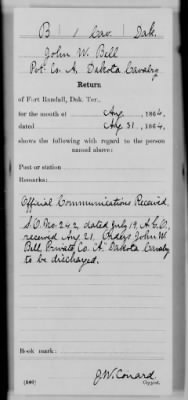 B | 1 Cav. | Dak.
John W. Bell
Pvt. Co. A. Dakota Cavalry
Return
of Fort Randall, Dak. Ter.,
for the month of Aug, 1864,
dated Aug 31, 1864,
shows the following with regard to the person
named above:
Post or station
Remarks:
Official Communications Received.
S.O. No. 242, dated July 19, A.G.O.,
received Aug 21. Orders John W.
Bell Private Co. "A" Dakota Cavalry
to be discharged.
Book mark:
J.W. Conard
(560) Copyist.